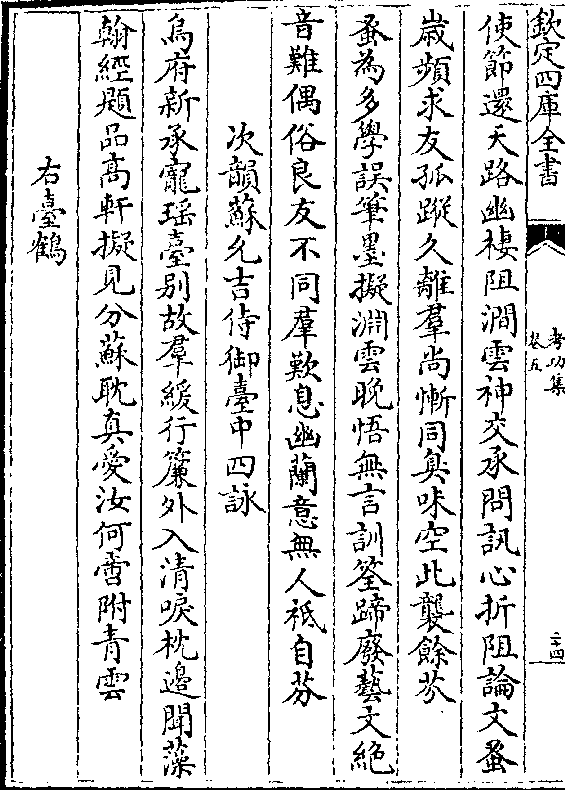 欽定四庫全書
考功集
卷五
二十四
使節還天路幽棲阻澗雲神交承問訊心折阻論文蚤
歲頻求友孤蹤久離羣尚慚同臭味空此襲餘芬
蚤為多學誤筆墨擬淵雲晚悟無言訓筌蹄廢藝文絕
音難偶俗良友不同羣歎息幽蘭意無人祗自芬
次韻蘇允吉侍御臺中四詠
烏府新承寵瑶臺别故羣緩行簾外入清唳枕邊聞藻
翰經題品髙軒擬見分蘇耽真愛汝何啻附青雲
右臺鶴